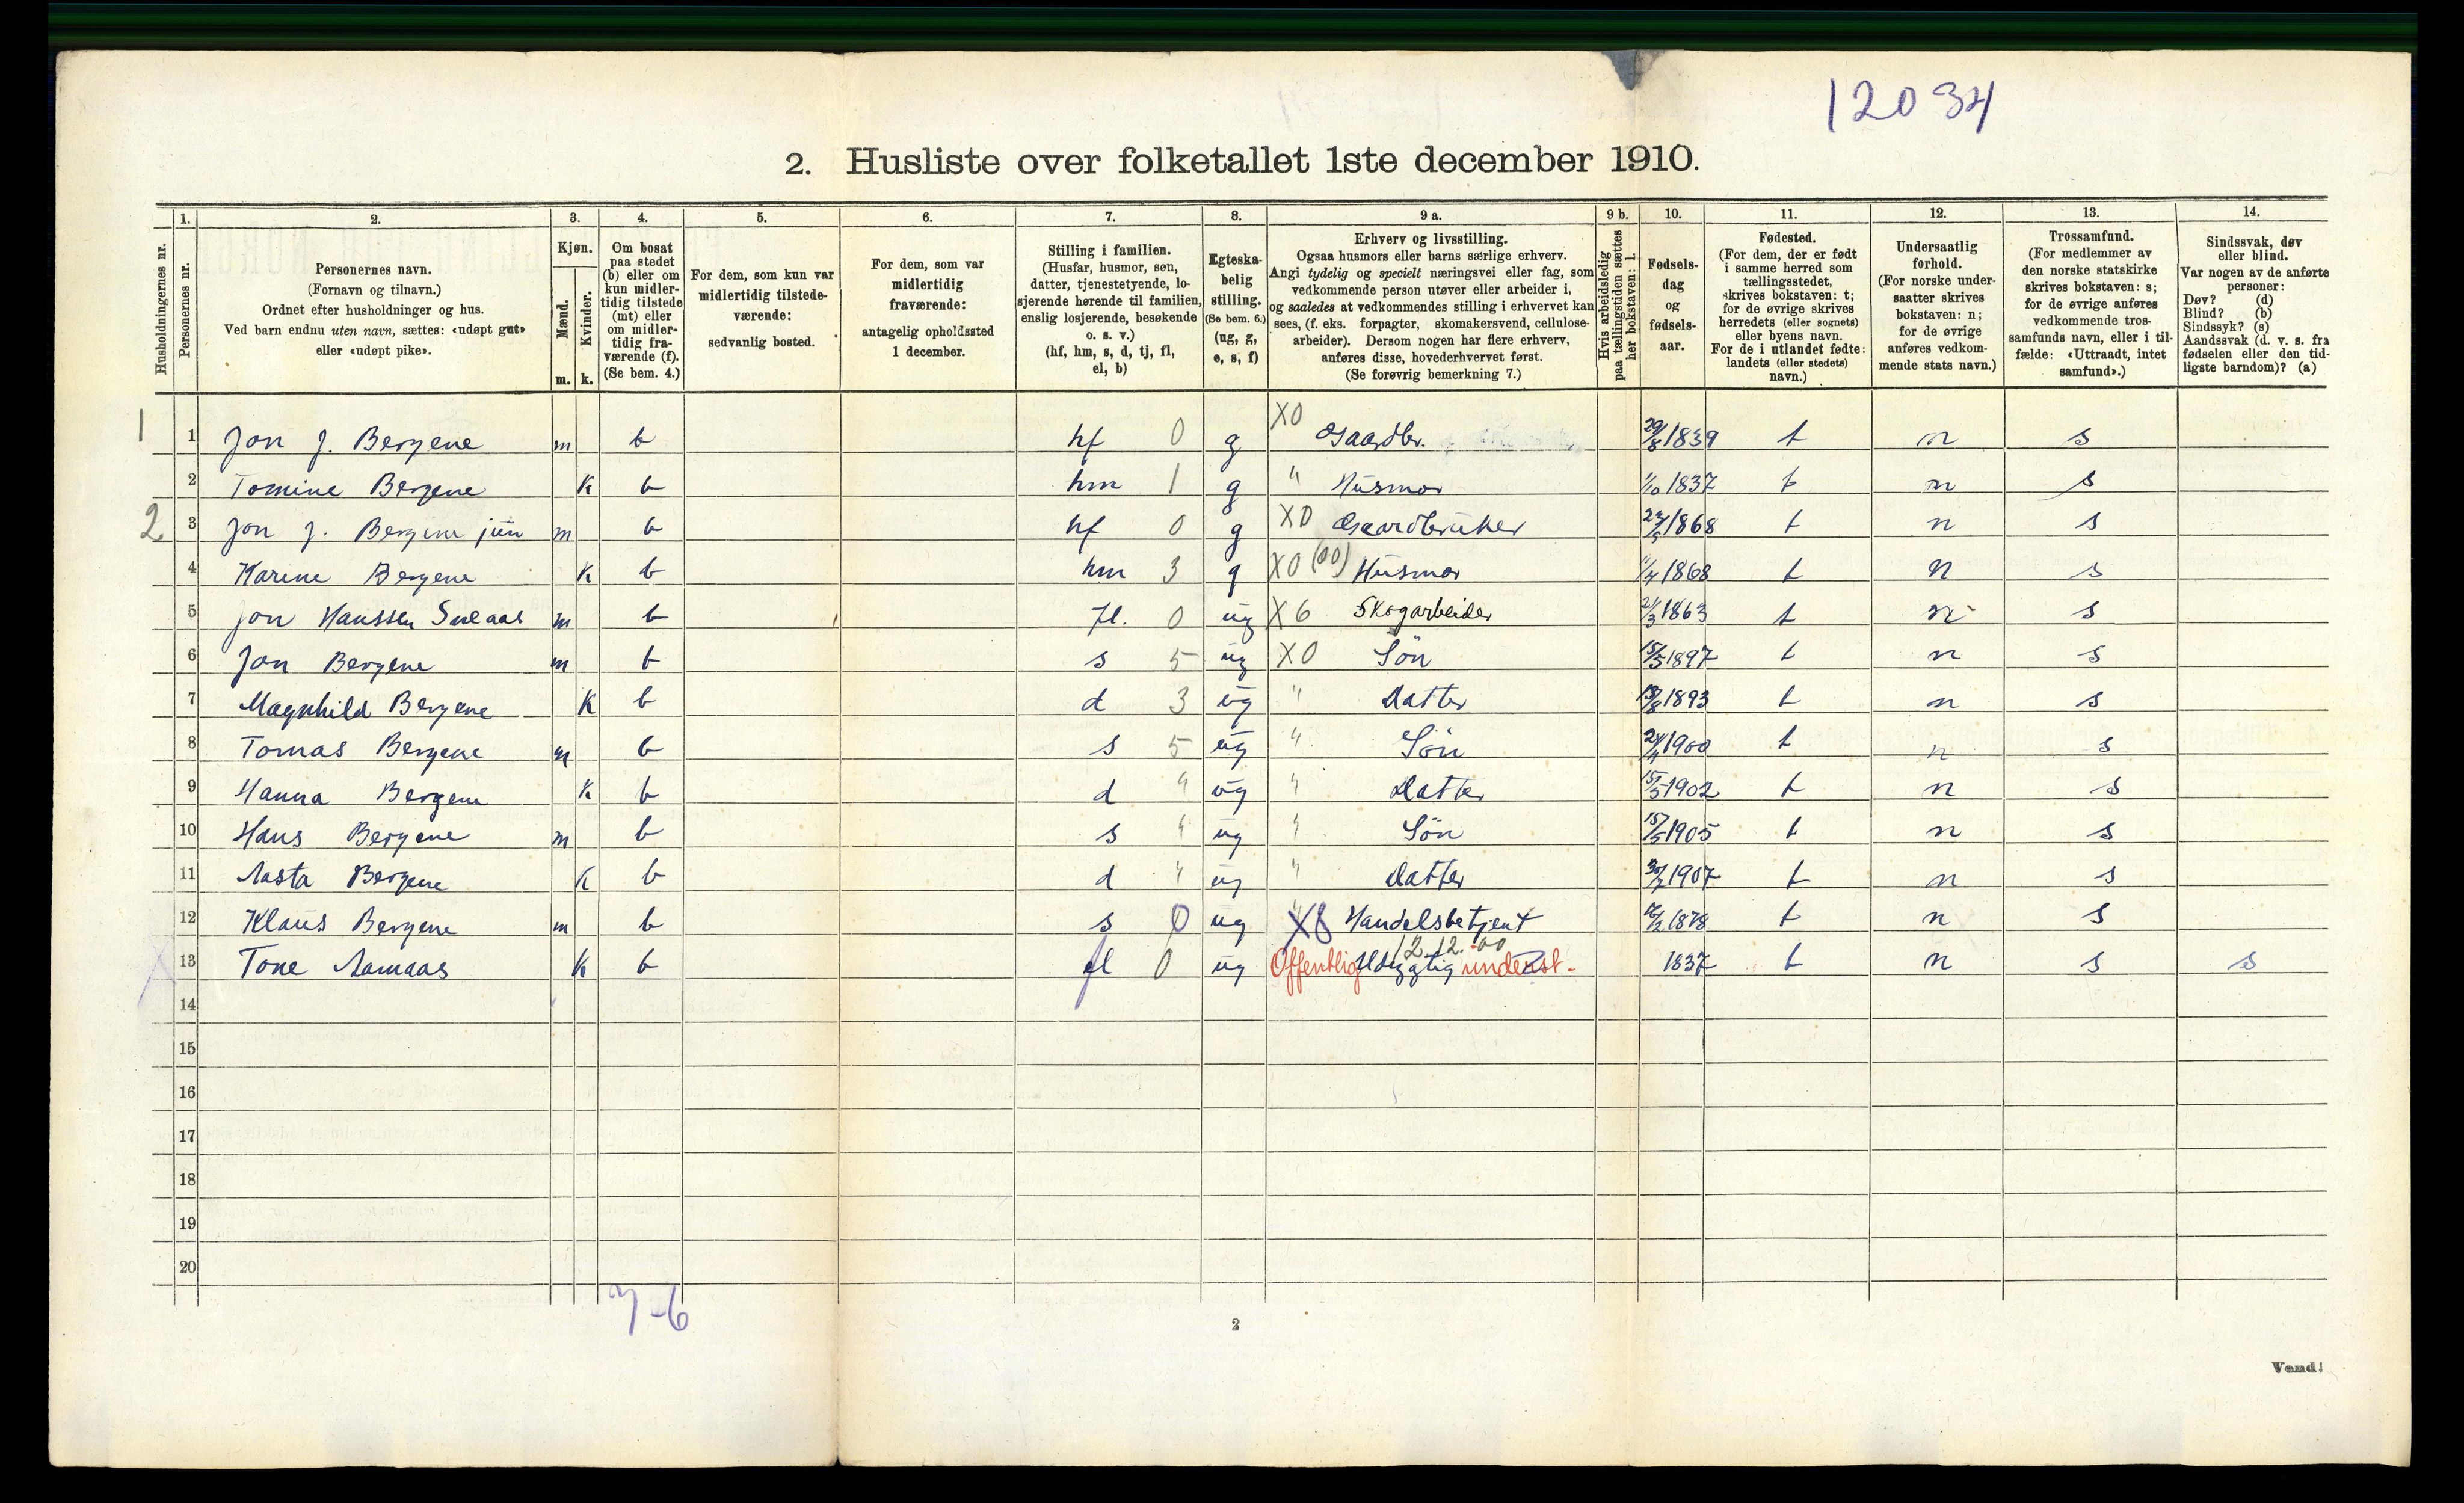 12034
2. Husliste over folketallet 1ste december 1910.
Husholdningernes nr.
1. Personernes nr.
2. Personernes navn. (Fornavn og tilnavn.) Ordnet efter husholdninger og hus. Ved barn endnu uten navn, sættes: «udøpt gut» eller «udøpt pike».
3. Kjøn. Mænd. m. Kvinder. k.
4. Om bosat paa stedet (b) eller om kun midler-tidig tilstede (mt) eller om midler-tidig fra-værende (f). (Se bem. 4.)
5. For dem, som kun var midlertidig tilstede-værende: sedvanlig bosted.
6. For dem, som var midlertidig fraværende: antagelig opholdssted 1 december.
7. Stilling i familien. (Husfar, husmor, søn, datter, tjenestetyende, lo-sjerende hørende til familien, enslig losjerende, besøkende o. s. v.) (hf, hm, s, d, tj, fl, el, b)
8. Egteska-belig stilling. (Se bem. 6.) (ug, g, e, s, f)
9 a. Erhverv og livsstilling. Ogsaa husmors eller barns særlige erhverv. Angi tydelig og specielt næringsvei eller fag, som vedkommende person utøver eller arbeider i, og saaledes at vedkommendes stilling i erhvervet kan sees, (f. eks. forpagter, skomakersvend, cellulose-arbeider). Dersom nogen har flere erhverv, anføres disse, hovederhvervet først. (Se forøvrig bemerkning 7.)
9 b. Hvis arbeidsledig paa tællingstiden sættes her bokstaven: l.
10. Fødsels-dag og fødsels-aar.
11. Fødested. (For dem, der er født i samme herred som tællingsstedet, skrives bokstaven: t; for de øvrige skrives herredets (eller sognets) eller byens navn. For de i utlandet fødte: landets (eller stedets) navn.)
12. Undersaatlig forhold. (For norske under-saatter skrives bokstaven: n; for de øvrige anføres vedkom-mende stats navn.)
13. Trossamfund. (For medlemmer av den norske statskirke skrives bokstaven: s; for de øvrige anføres vedkommende tros-samfunds navn, eller i til-fælde: «Uttraadt, intet samfund».)
14. Sindssvak, døv eller blind. Var nogen av de anførte personer: Døv? (d) Blind? (b) Sindssyk? (s) Aandssvak (d. v. s. fra fødselen eller den tid-ligste barndom)? (a)
1 1 Jon J. Bergene m b hf 0 g X0 Gaardbr. 29/8 1839 t n s
2 Tomine Bergene K b hm 1 g " Husmor 1/10 1837 t n s
2 3 Jon J. Bergene jun m b hf 0 g X0 Gaardbruker 1868 t n s
4 Karine Bergene K b hm 3 g X0 (00) Husmor 1868 t n s
5 Jon Hanssen m b fl. 0 ug X6 Skogarbeider 1863 t n s
6 Jon Bergene m b s 5 ug X0 Søn 15/5 1897 t n s
7 Magnhild Bergene K b d 3 ug " Datter 1893 t n s
8 Tomas Bergene m b s 5 ug " Søn 1900 t n s
9 Hanna Bergene K b d " ug " Datter 15/5 1902 t n s
10 Hans Bergene m b s " ug " Søn 1905 t n s
11 Aasta Bergene K b d " ug " Datter 1907 t n s
12 Klaus Bergene m b s 0 ug Handelsbetjent 1878 t n s
13 Tone Aamaas K b fl 0 ug Offentlig underst. 12.12.00 1837 t n s s
14
15
16
17
18
19
20
7-6
2
Vend!